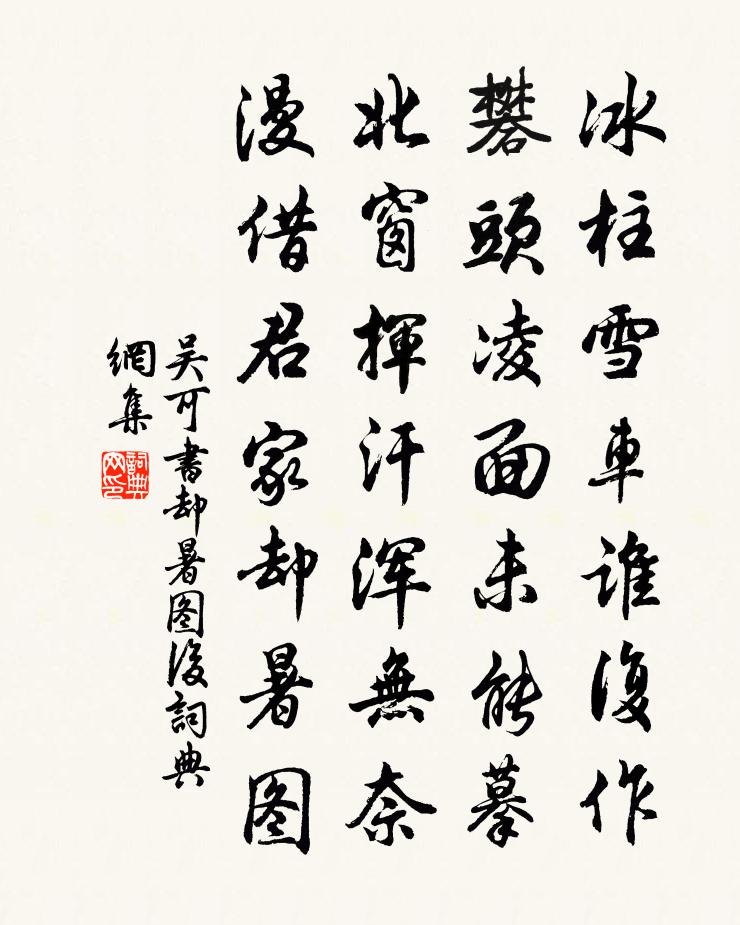 冰柱雪車誰復作
礬頭凌面未能摹
北窗揮汗浑無奈
漫借君家却暑图
吴可書却暑图後詞典
網集
詞典网印